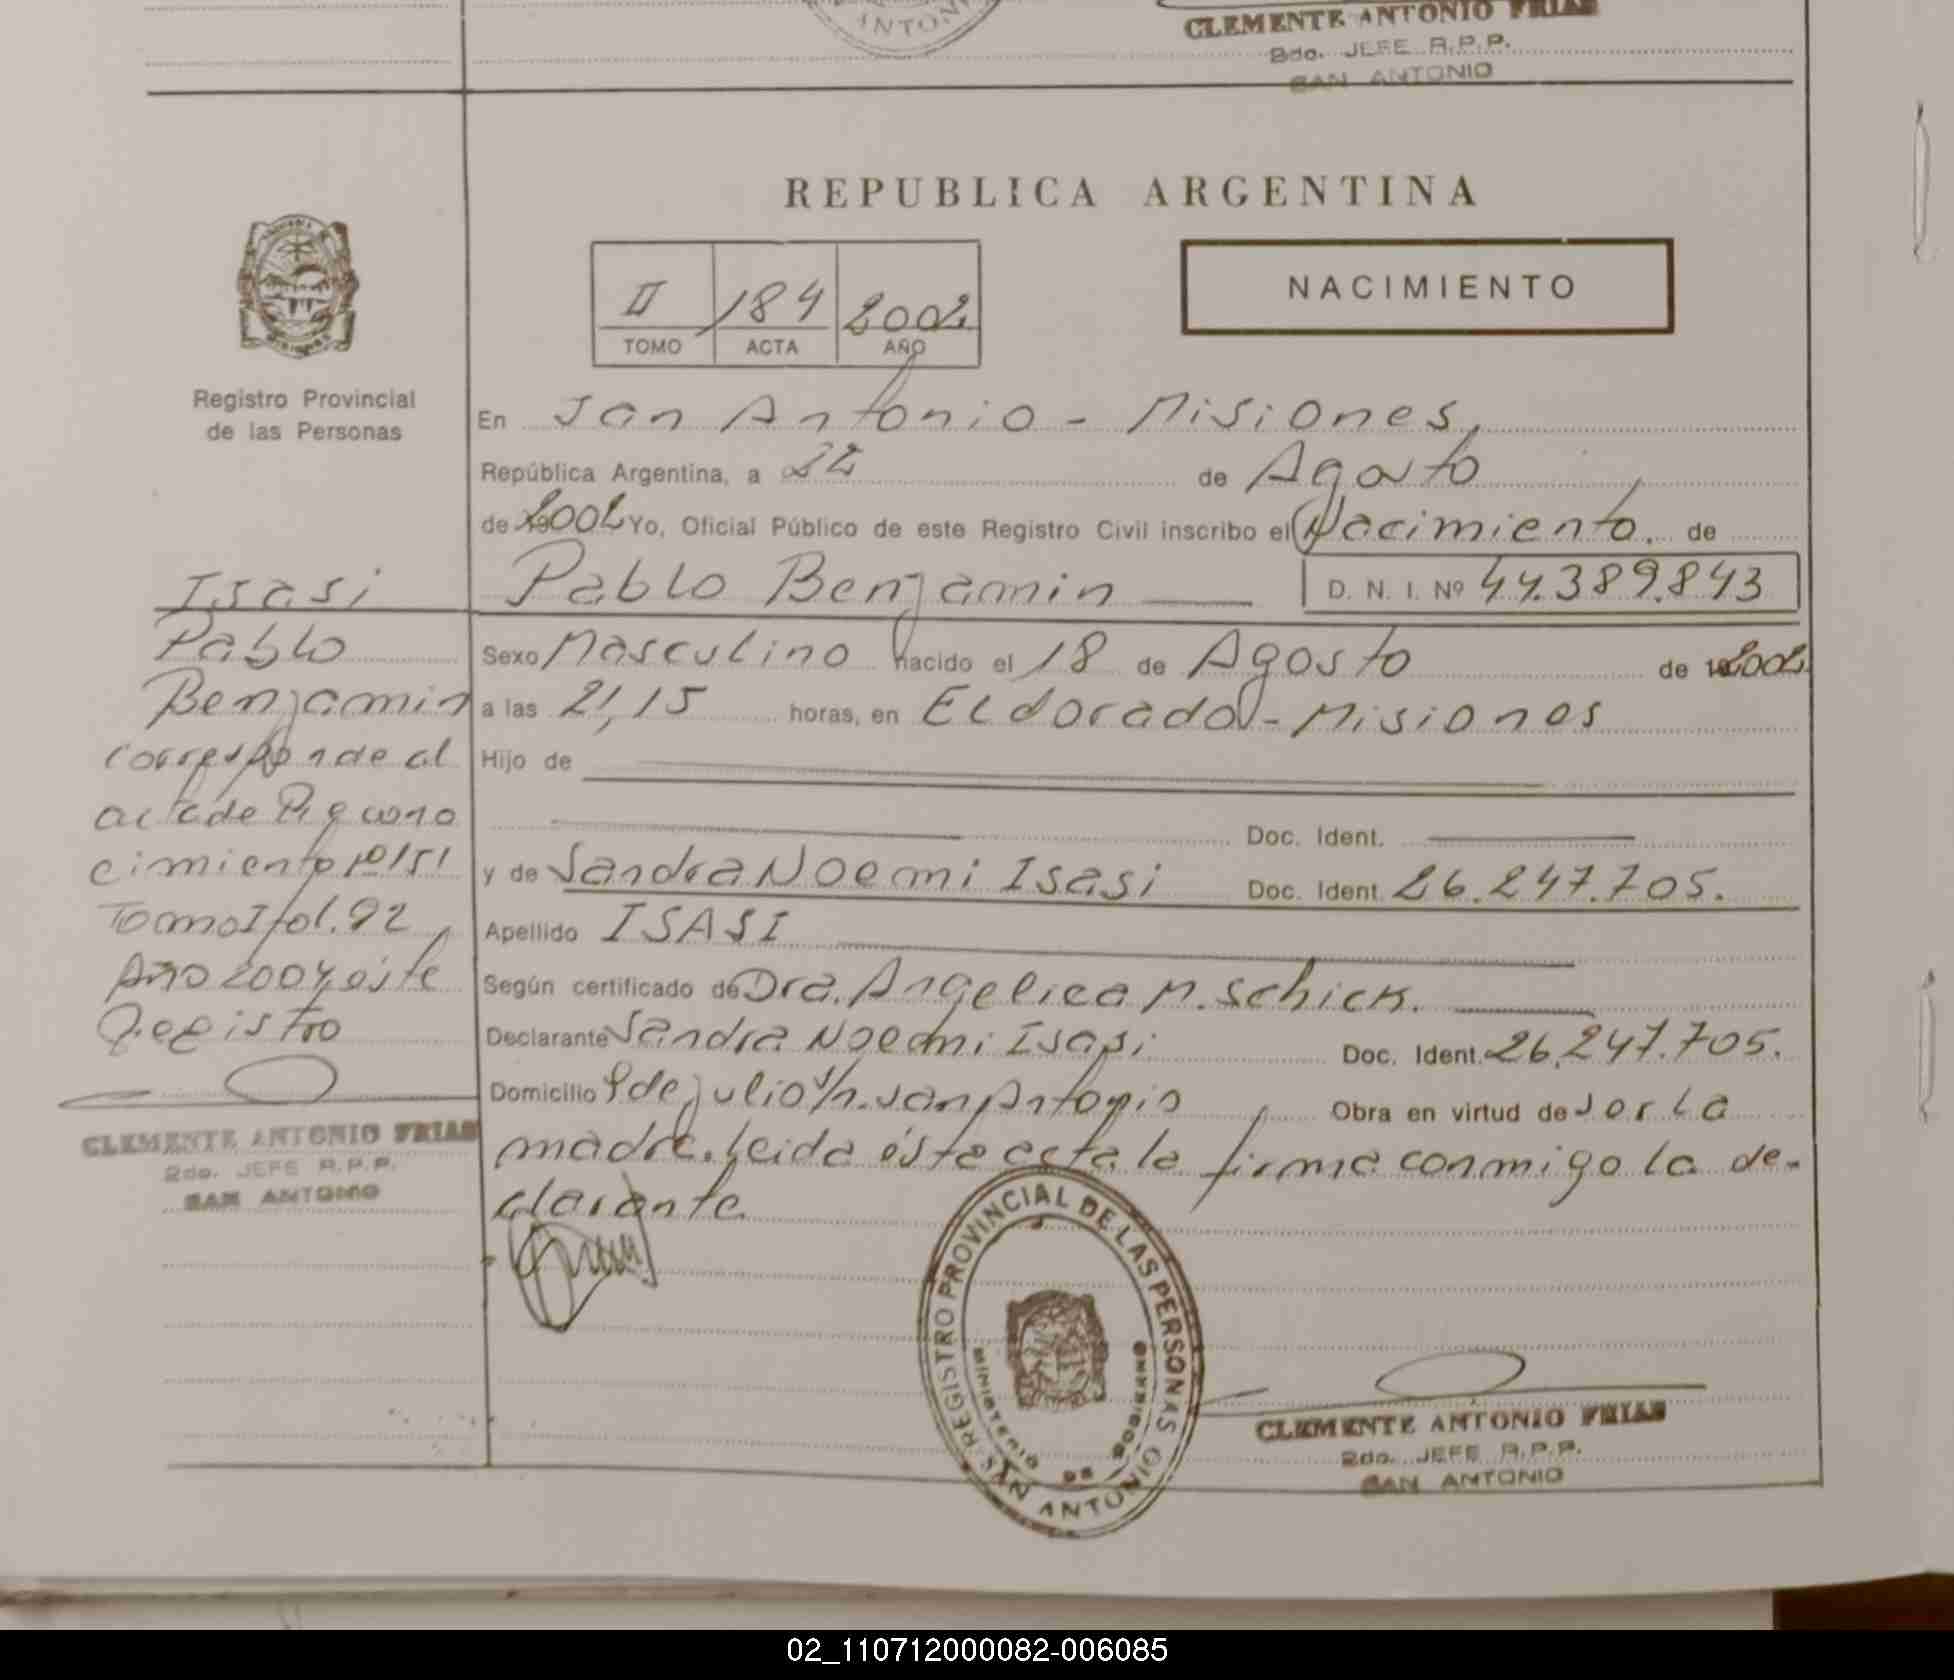 ANTONI
CLEMENTE ANTONIO FRIAS
2do. JEFE R.P.P.
SAN ANTONIO
REPUBLICA ARGENTINA
II 184 2002
TOMO ACTA AÑO
NACIMIENTO
Registro Provincial
de las Personas
En San Antonio - Misiones,
República Argentina, a 22 de Agosto
de 2002 Yo, Oficial Público de este Registro Civil inscribo el Nacimiento. de
Pablo Benjamin D. N. I. Nº 44.389.843
Sexo Masculino nacido el 18 de Agosto de 2002
a las 21,15 horas, en Eldorado - Misiones
Hijo de
Doc. Ident.
y de Sandra Noemi Isasi Doc. Ident. 26.247.705.
Apellido ISASI
Según certificado de Dra. Angelica M. Schick.
Declarante Sandra Noemi Isasi Doc. Ident. 26.247.705.
Domicilio 9 de julio s/n. San Antonio Obra en virtud de ser la
madre. Leida ésta acta la firma conmigo la de-
clarante
Isasi
Pablo
Benjamin
corresponde al
acta de Recono
cimiento Nº 151
Tomo I fol. 92
Año 2004, éste
Registro
CLEMENTE ANTONIO FRIAS
2do. JEFE R.P.P.
SAN ANTONIO
REGISTRO PROVINCIAL DE LAS PERSONAS
MINISTERIO DE GOBIERNO
SAN ANTONIO
CLEMENTE ANTONIO FRIAS
2do. JEFE R.P.P.
SAN ANTONIO
02_110712000082-006085